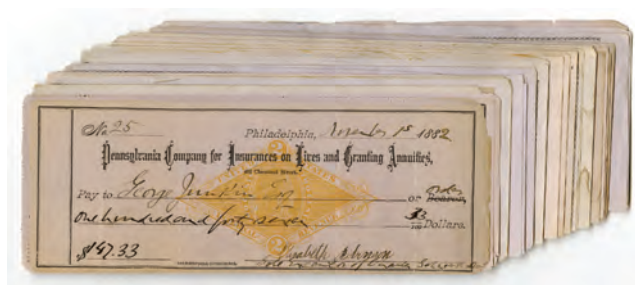 No 25
Philadelphia, November 1st 1882
Pennsylvania Company for Insurances on Lives and Granting Annuities,
Pay to George Junkin Esq or order Bearer,
One hundred and forty seven 33/100 Dollars.
$147.33
Elizabeth